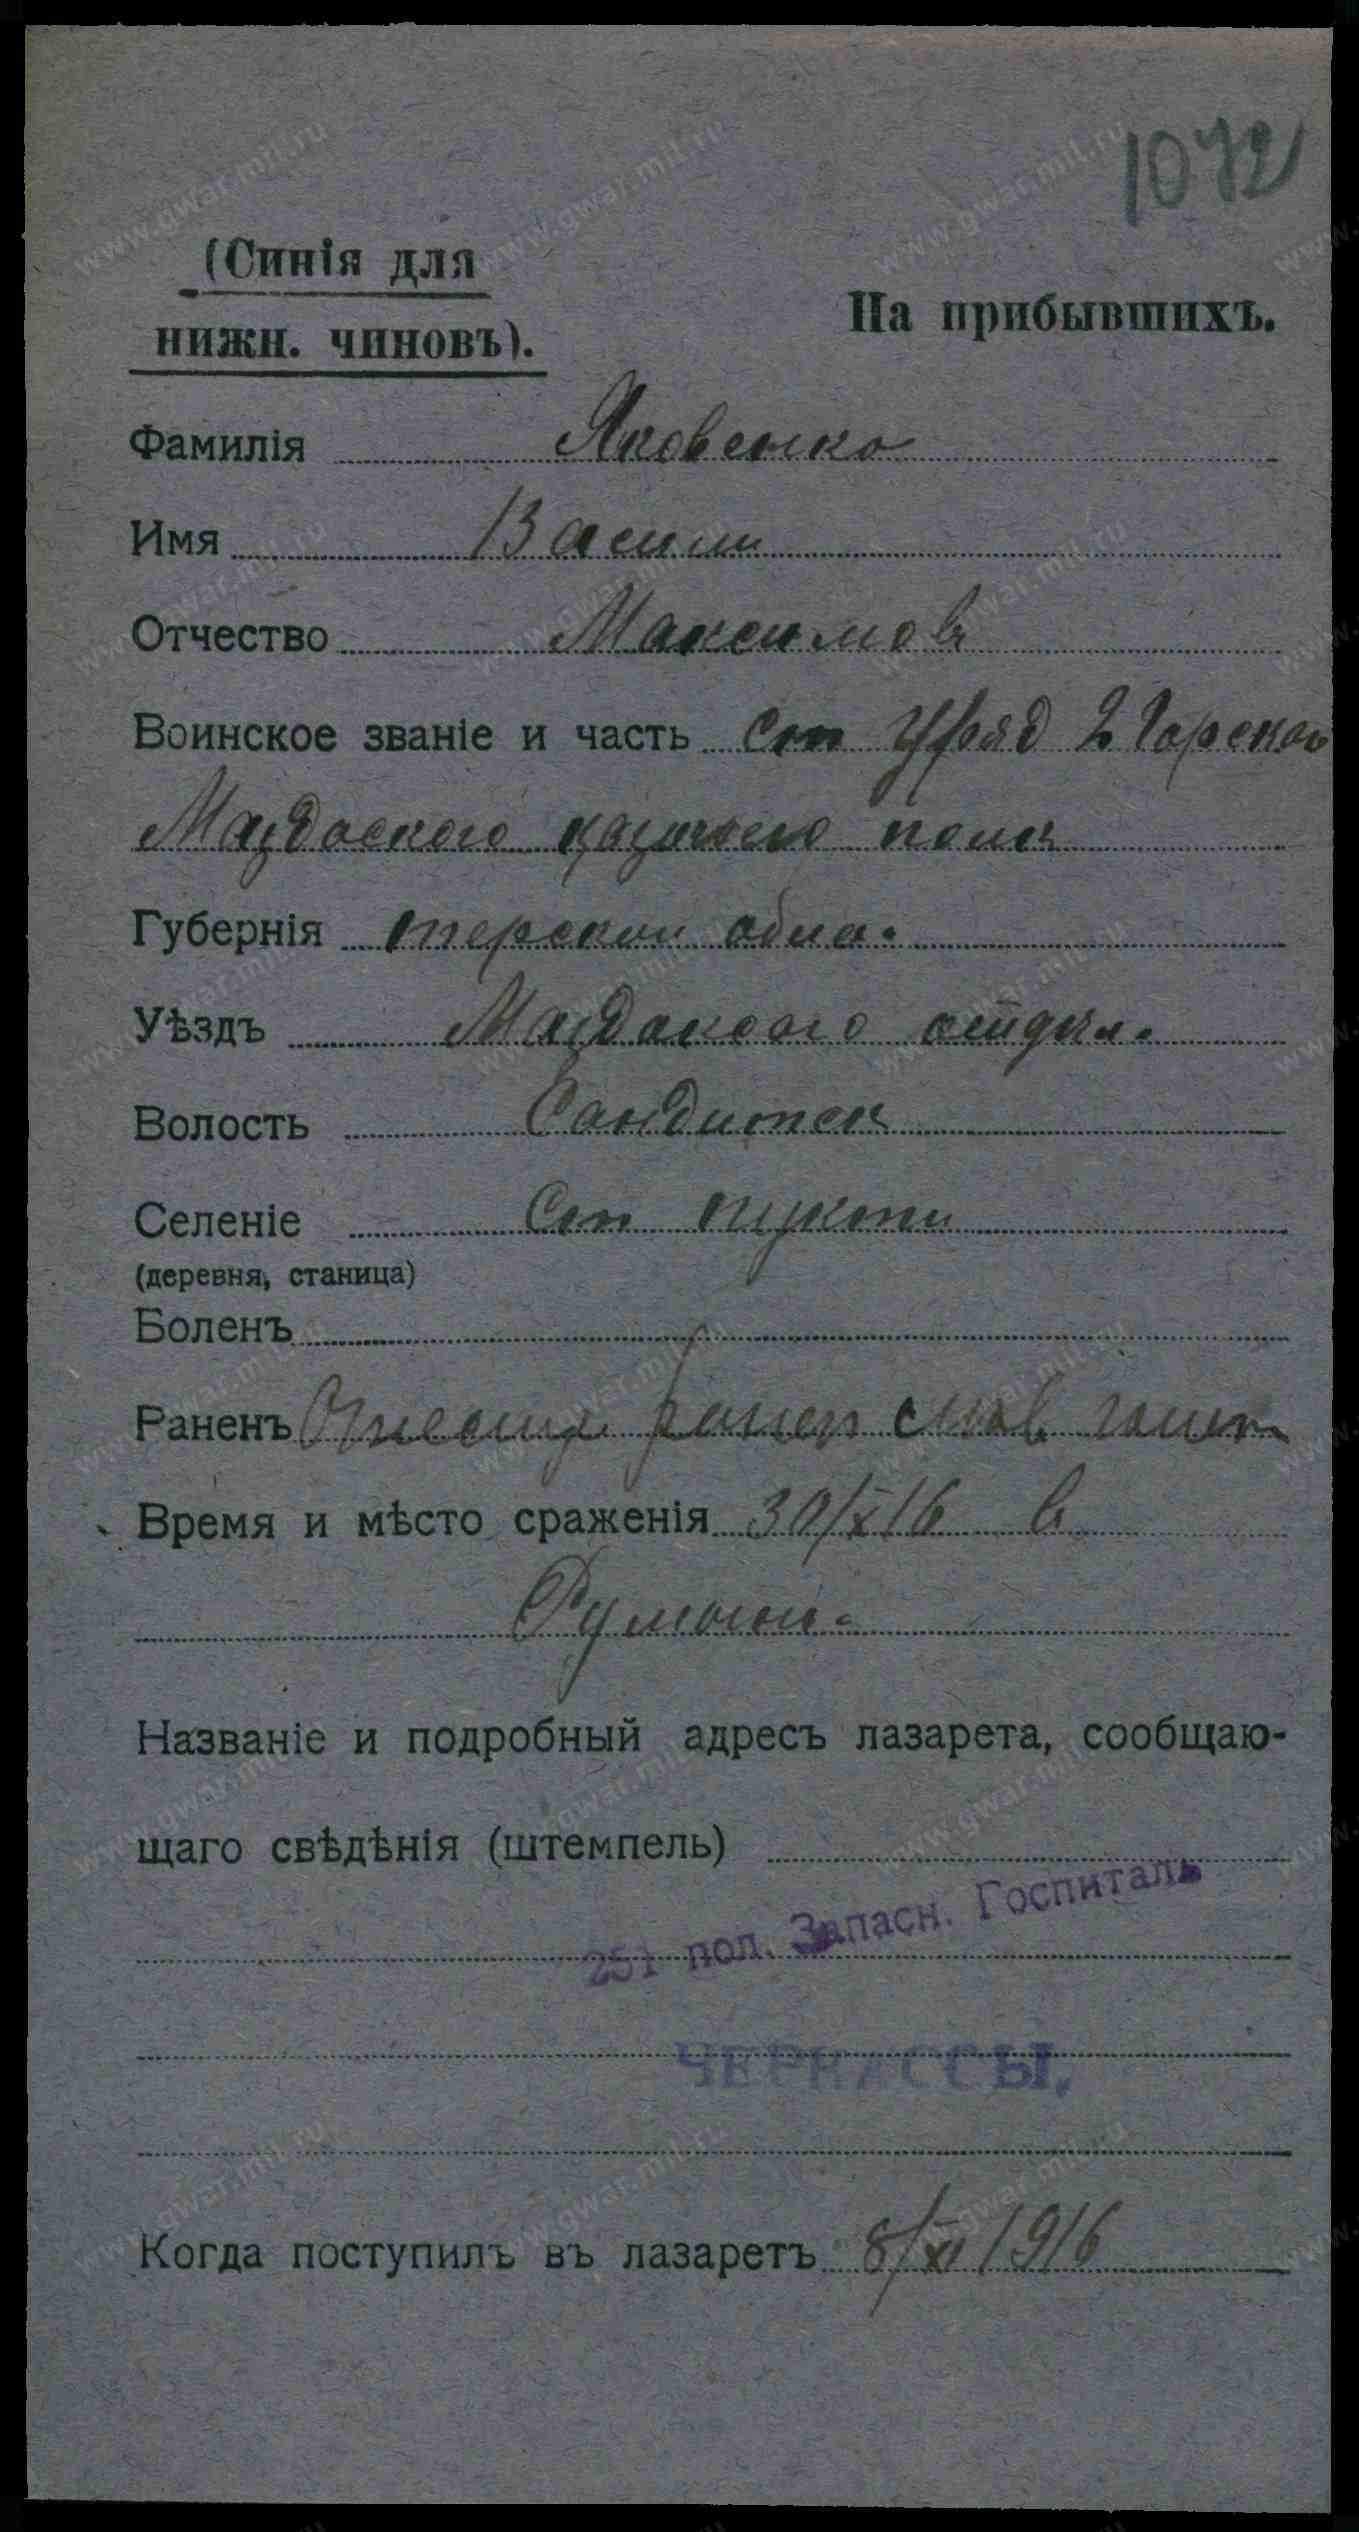 1072
(Синія для
нижн. чиновъ).
На прибывшихъ.
Фамилія Яковенко
Имя Васили
Отчество Максимов
Воинское званіе и часть ст Уряд 2 Горского
Маздоского казачьего полк
Губернія терской обла.
Уѣздъ Маздокского отдел.
Волость
Селеніе Ст
(деревня, станица)
Боленъ
Раненъ
Время и мѣсто сраженія 30/X 16 в
Румыни.
Названіе и подробный адресъ лазарета, сообщаю-
щаго свѣдѣнія (штемпель)
251 пол. Запасн. Госпиталь
ЧЕРКАССЫ.
Когда поступилъ въ лазаретъ 8/XI 1916